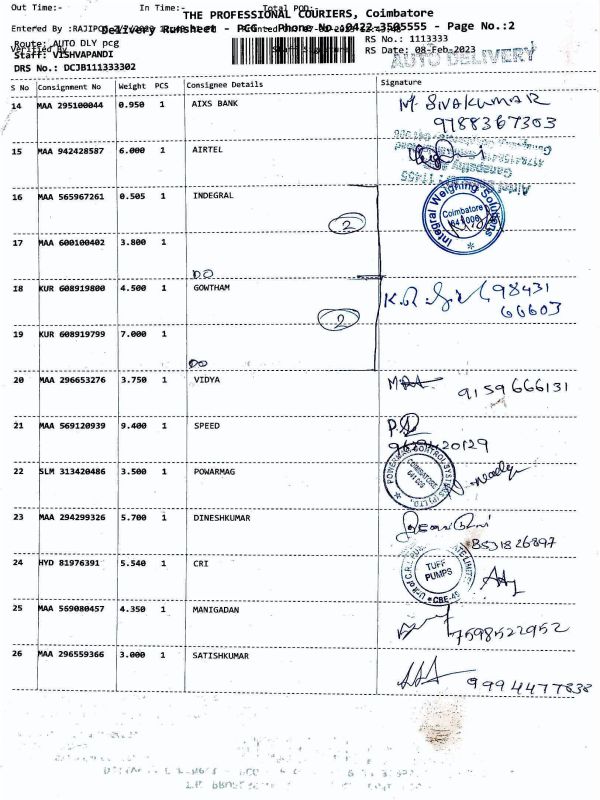 Out Time:- In Time:- Total POD:-
THE PROFESSIONAL COURIERS, Coimbatore
Delivery Runsheet - PCG - Phone No.:0422-3505555 - Page No.:2
Route: AUTO DLY pcg RS No.: 1113333
Staff: VISHVAPANDI RS Date: 08-Feb-2023
AUTO DELIVERY
DRS No.: DCJB111333302
S No Consignment No Weight PCS Consignee Details Signature
14 MAA 295100044 0.950 1 AIXS BANK M. SIVAKUMAR
9788367303
15 MAA 942428587 6.000 1 AIRTEL
16 MAA 565967261 0.505 1 INDEGRAL
Integral Weighing Solutions
Coimbatore
641 006
2
17 MAA 600100402 3.800 1
DO
18 KUR 608919800 4.500 1 GOWTHAM 98431
66603
2
19 KUR 608919799 7.000 1
DO
20 MAA 296653276 3.750 1 VIDYA 9159666131
21 MAA 569120939 9.400 1 SPEED
22 SLM 313420486 3.500 1 POWARMAG
COIMBATORE
641 006
23 MAA 294299326 5.700 1 DINESHKUMAR
8531826897
24 HYD 81976391 5.540 1 CRI
TUFF
PUMPS
25 MAA 569080457 4.350 1 MANIGADAN
7598522952
26 MAA 296559366 3.000 1 SATISHKUMAR
9994477838